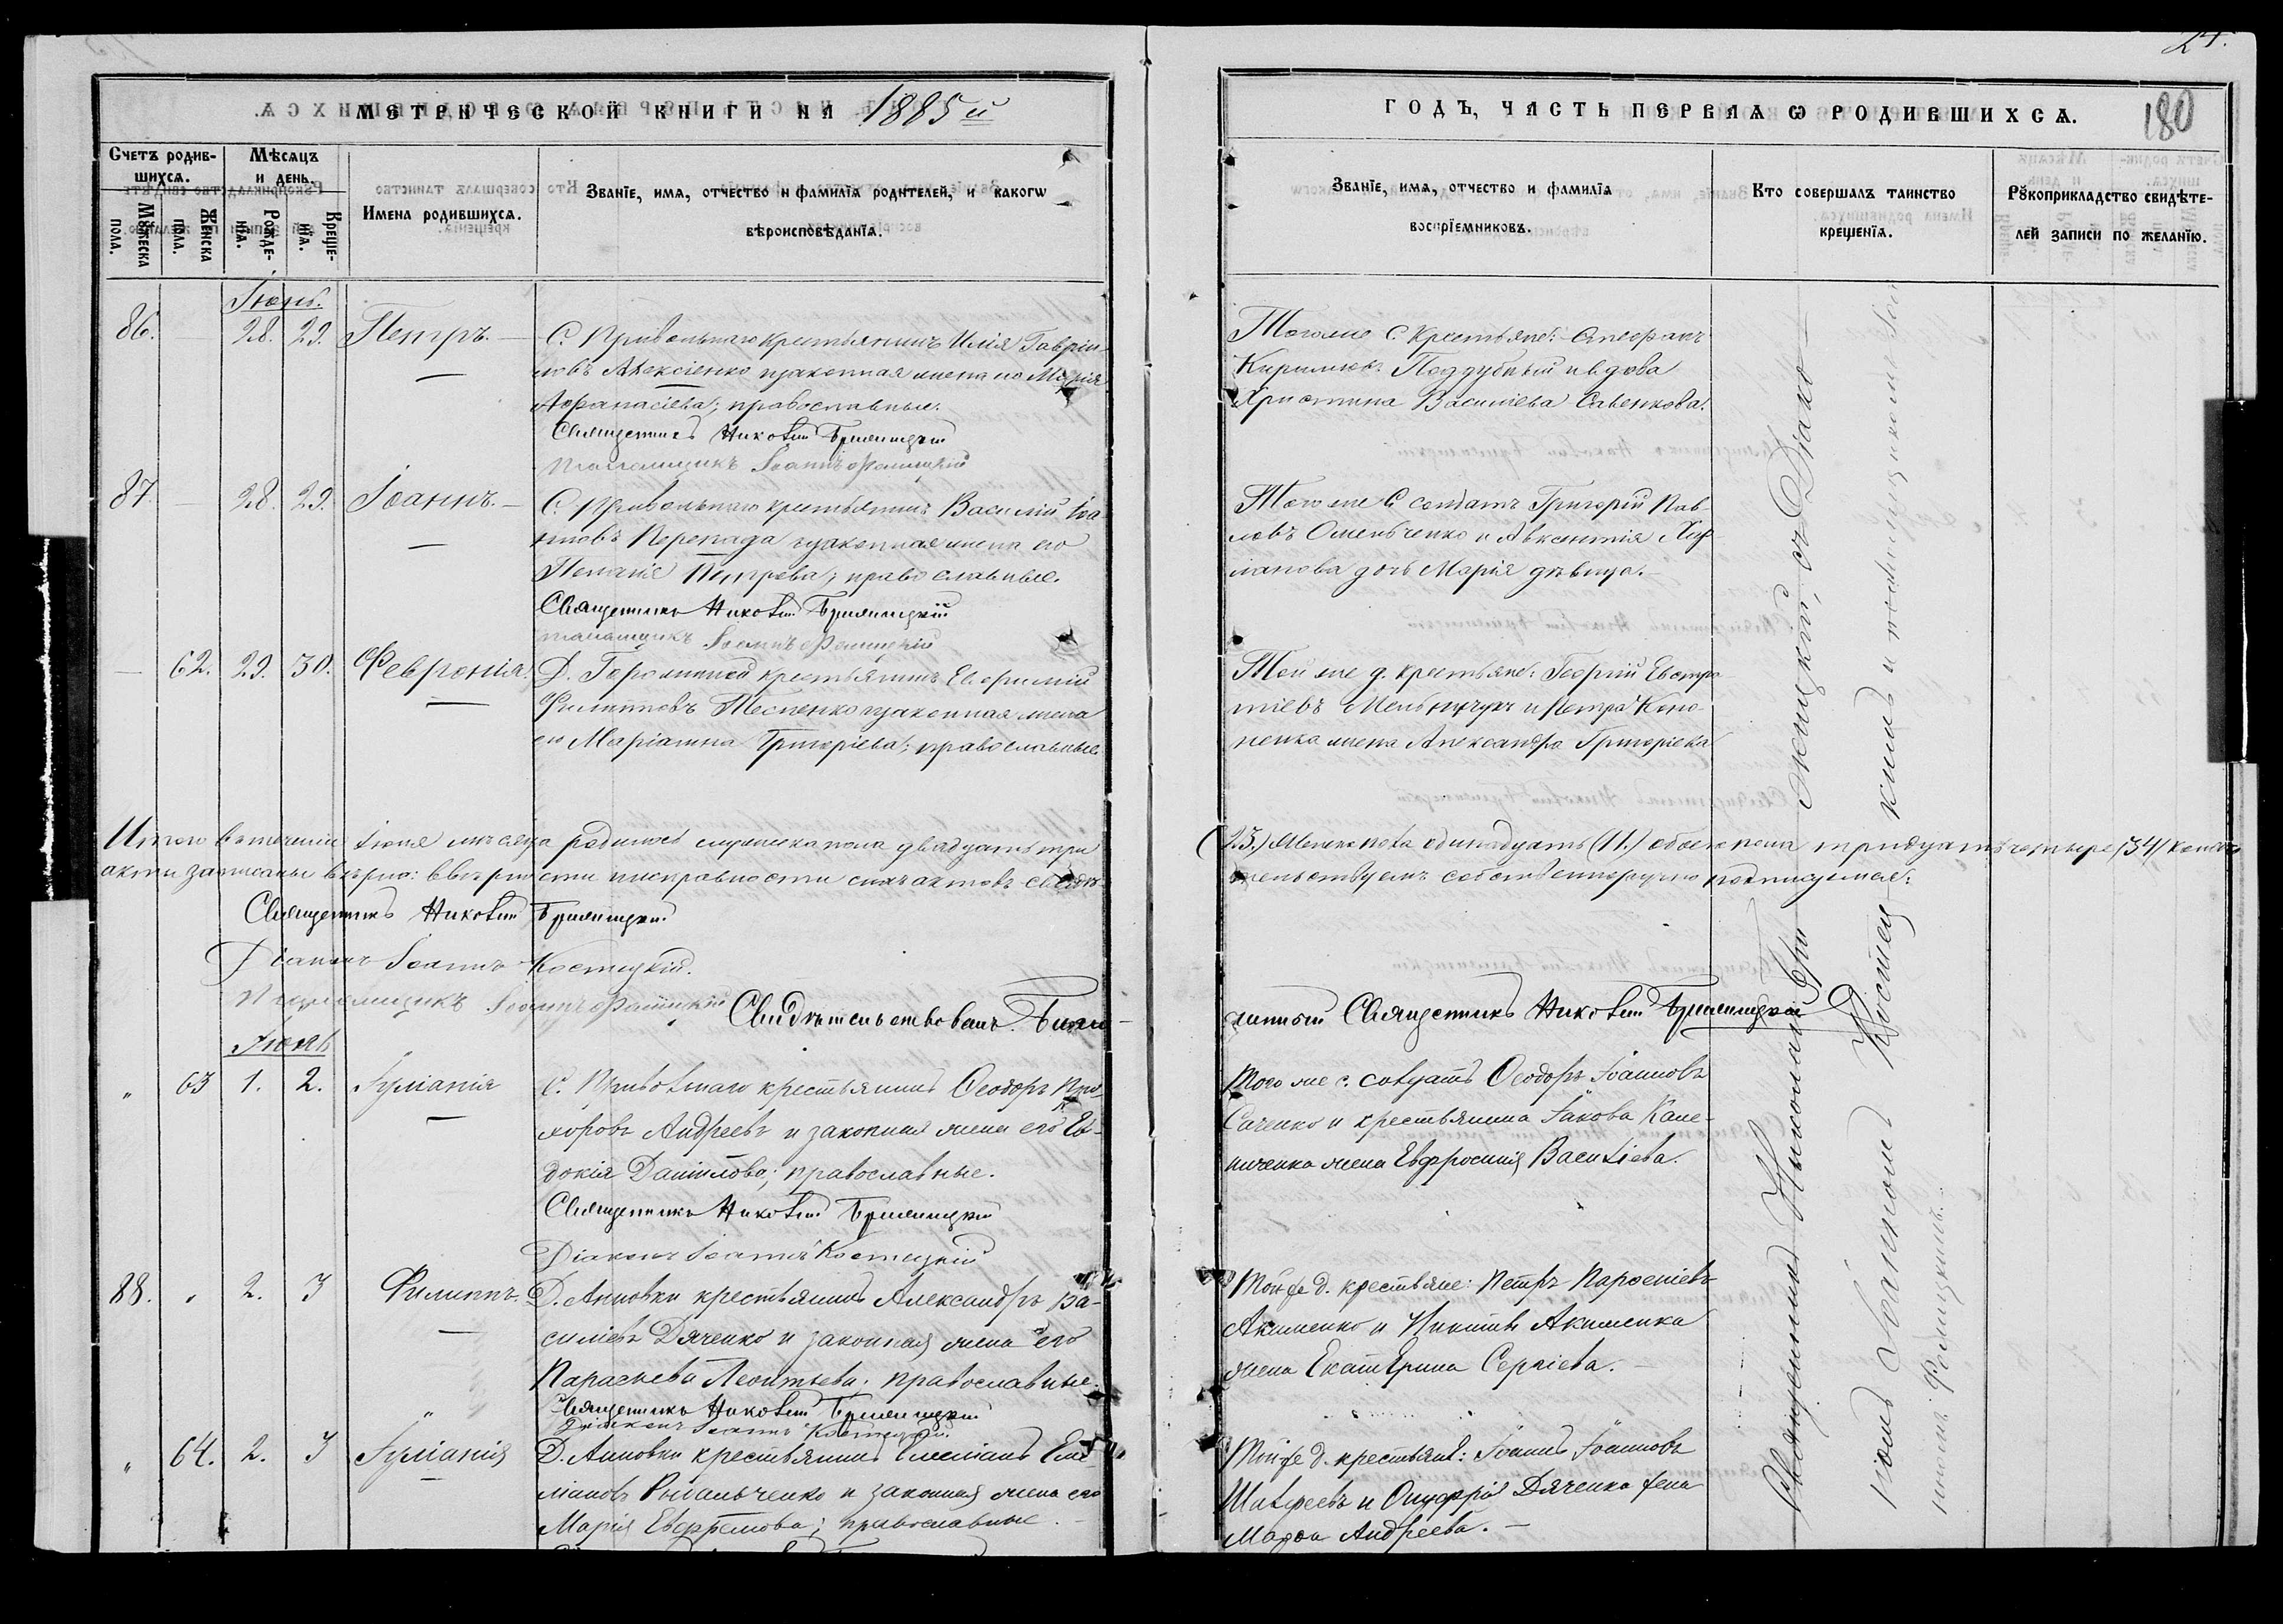 24.
МЕТРИЧЕСКОЙ КНИГИ НА 1885й
ГОДЪ, ЧАСТЬ ПЕРВАѦ Ѡ РОДИВШИХСѦ.
180
Счетъ родив-
шихсѧ.
Мѣсѧцъ
и день.
Мꙋжеска
пола.
Женска
пола.
Рожде-
нїѧ.
Креще-
нїѧ.
Имена родившихсѧ.
Званїе, имѧ, отчество и фамилїѧ родителей, и какогѡ
вѣроисповѣданїѧ.
Званїе, имѧ, отчество и фамилїѧ
воспрїемниковъ.
Кто совершалъ таинство
крещенїѧ.
Рꙋкоприкладство свидѣте-
лей записи по желанїю.
Іюнь.
86. — 28. 29. Петръ. —
С. Привольнаго крестьянинъ Илія Гаврiи-
ловъ Алексіенко изаконная жена его Марія
Афанасіева; православные.
Священникъ Николай
Псаломщикъ Іоаннъ
Тогоже С. крестьяне: Стефанъ
Кириловъ Поддубный и вдова
Христина Василіева Савенкова.
87. — 28. 29. Іоаннъ. —
С. Привольнаго крестьянинъ Василій Іоа-
нновъ Перепада изаконная жена его
Пелагія Петрова; православные.
Священникъ Николай
Псаломщикъ Іоаннъ
Тогоже С. солдатъ Григорій Пав-
ловъ Омельченко и Авксентія
дочь Марія дѣвица. —
— 62. 29. 30. Февронія.
крестьянинъ Евфимій
Филипповъ изаконная жена
его Маріанна Григоріева; православные.
Той же д. крестьяне: Георгій Евстра-
тіевъ Мельничукъ и Петра Коно-
ненка жена Александра Григоріева
Итого втеченіи іюня мѣсяца родилось мужеска пола двадцать три
(23.) Женска пола одинадцать (11.) обоего пола тридцать четыре (34)
акты записаны вѣрно: ввѣрности и исправности сихъ актовъ свидѣ-
тельствуемъ собственноручно подписуемся:
Священникъ Николай
Діаконъ Іоаннъ Костецкій.
Псаломщикъ Іоаннъ
Свидѣтельствовалъ: Благо-
чинный Священникъ Николай
Іюль
„ 63 1. 2. Іуліанія
С. Привольнаго крестьянинъ Ѳеодоръ Про-
хоровъ Андреевъ и законная жена его Ев-
докія Даніилова; православные.
Священникъ Николай
Діаконъ Іоаннъ Костецкій
Того же с. солдатъ Ѳеодоръ Іоанновъ
Саченко и крестьянина Іакова
жена Евфросинія Василіева.
88. „ 2. 3 Филиппъ.
Д. Анновки крестьянинъ Александръ Ва-
силіевъ Дяченко и законная жена его
Параскева Леонтьева; православные.
Священникъ Николай
Діаконъ Іоаннъ Костецкій.
Тойже д. крестьяне: Петръ Парѳеніевъ
Акименко и Никиты Акименка
жена Екатерина Сергіева. —
„ 64. 2. 3 Іуліанія
Д. Анновки крестьянинъ Емеліанъ Еме-
ліановъ и законная жена его
Марія Евфремова; православные. —
Тойже д. крестьяне: Іоаннъ Іоанновъ
и Онуфрія Дяченка жена
Марѳа Андреева. —
Священникъ Николай съ Діако-
номъ Іоанномъ Костец-
кимъ и псаломщикомъ Іоан-
номъ